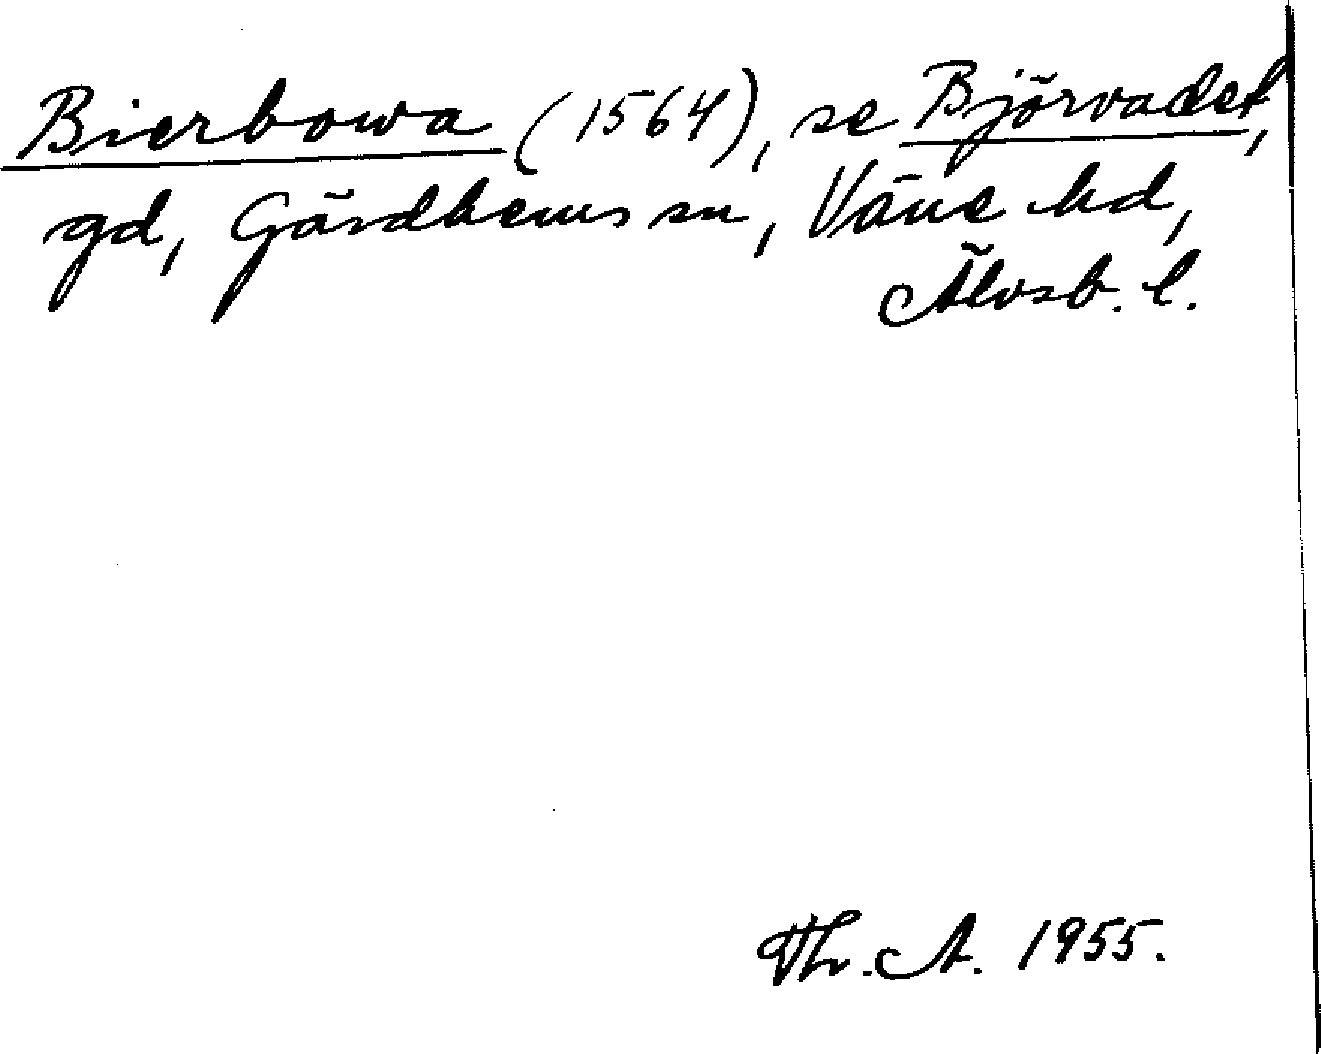 Bierbowa (1564), se Björvadet,
gd, Gärdhems sn, Väne hd,
Älvsb. l.
Th. A. 1955.